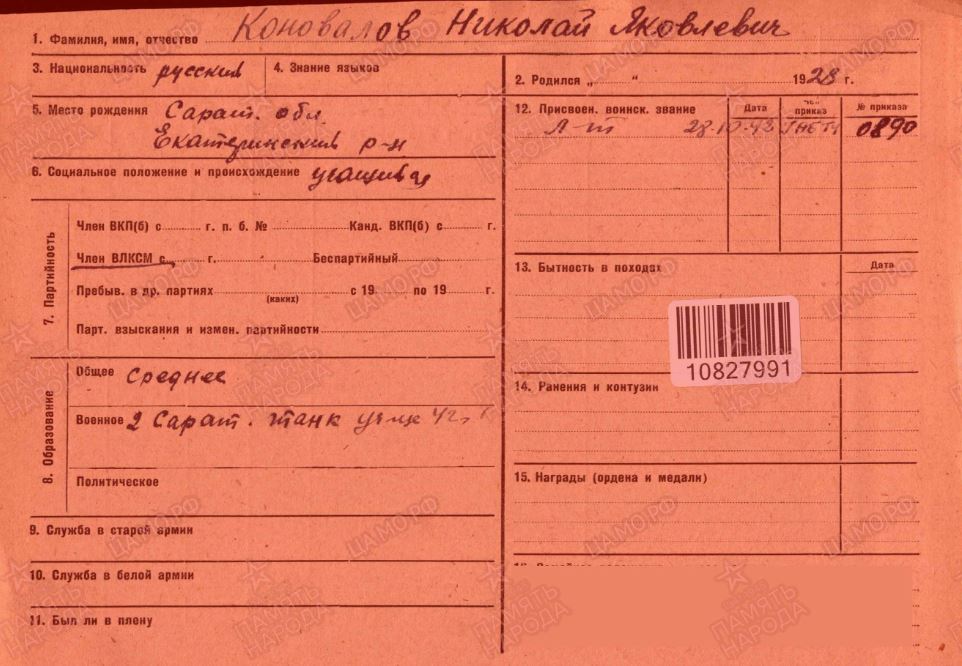 1. Фамилия, имя, отчество Коновалов Николай Яковлевич
3. Национальность русский
4. Знание языков
5. Место рождения Сарат. обл.
Екатеринский р-н
6. Социальное положение и происхождение учащийся
7. Партийность
Член ВКП(б) с г. п. б. № Канд. ВКП(б) с г.
Член ВЛКСМ с г. Беспартийный
Пребыв. в др. партиях с 19 по 19 г.
(каких)
Парт. взыскания и измен. партийности
8. Образование
Общее среднее
Военное 2 Сарат. танк уч-ще 42г.
Политическое
9. Служба в старой армии
10. Служба в белой армии
11. Был ли в плену
2. Родился „ “ 1923 г.
12. Присвоен. воинск. звание Дата Чей приказ № приказа
Л-т 28.10.42 0890
13. Бытность в походах Дата
10827991
14. Ранения и контузии
15. Награды (ордена и медали)
ПАМЯТЬ НАРОДА
ЦАМО.РФ